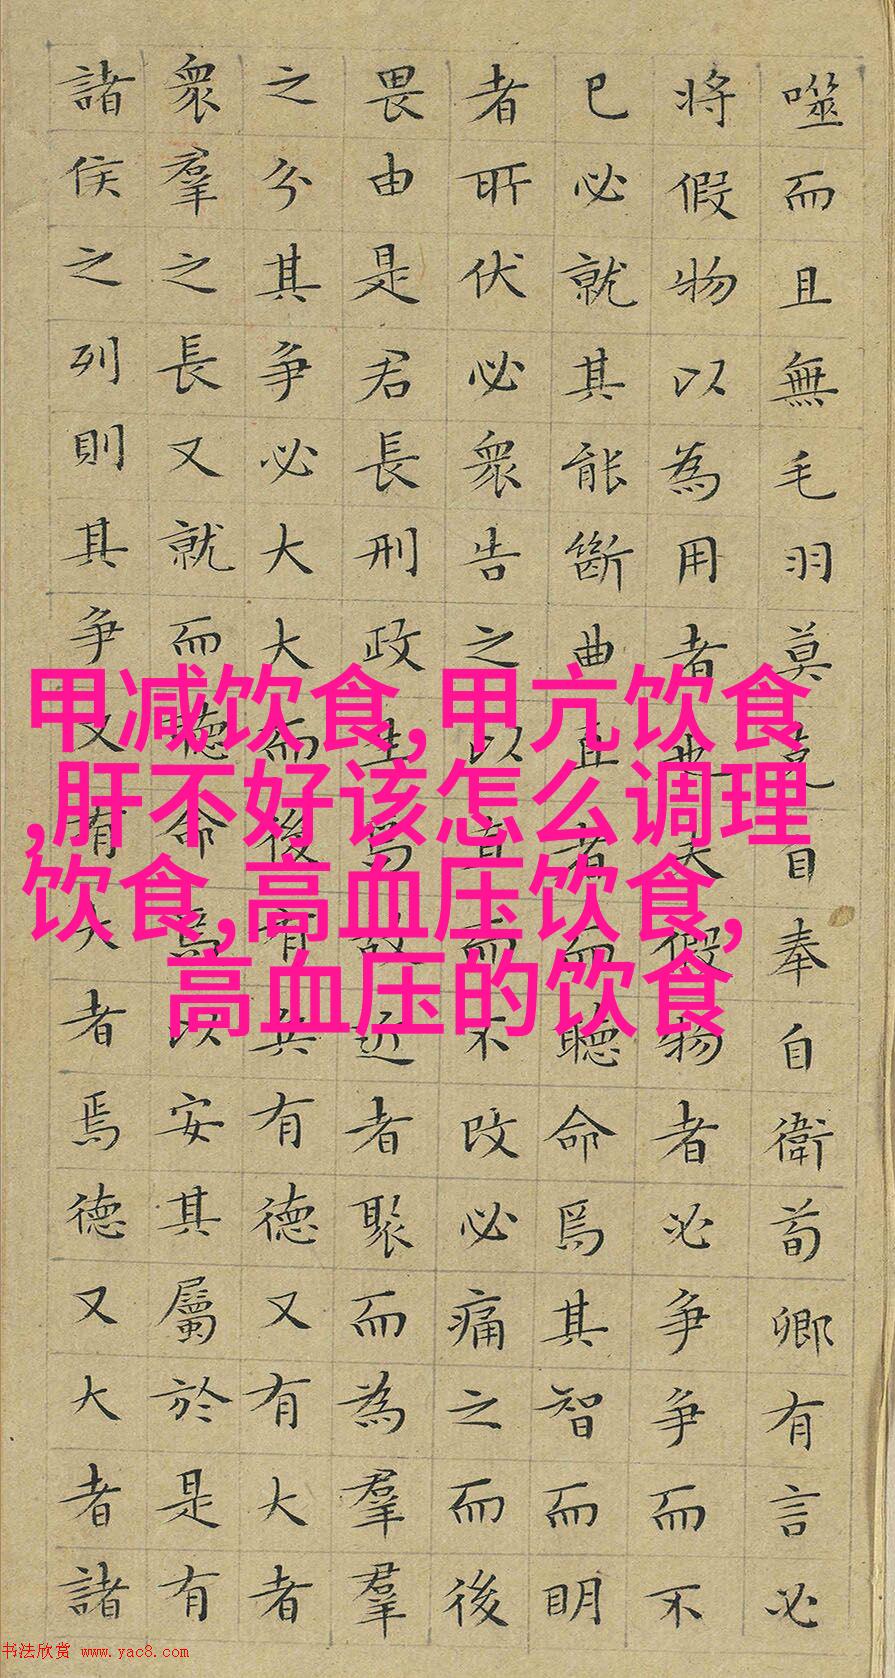 噬而且無毛羽莫克自奉自衛荀卿有言必
將假物以為用者也夫假物者必争争而不
已必就其能斷曲直者而聽命焉其智而明
者所伏必衆告之以直而不改必痛之而後
畏由是君長刑政生焉故近者聚而為羣羣
之分其争必大大而後有兵有德又有大者
衆羣之長又就而聽命焉以安其屬於是有
諸侯之列則其争又有大者焉德又大者諸
甲减饮食,甲亢饮食
,肝不好该怎么调理
饮食,高血压饮食,
高血压的饮食
书法欣赏 www.yac8.com